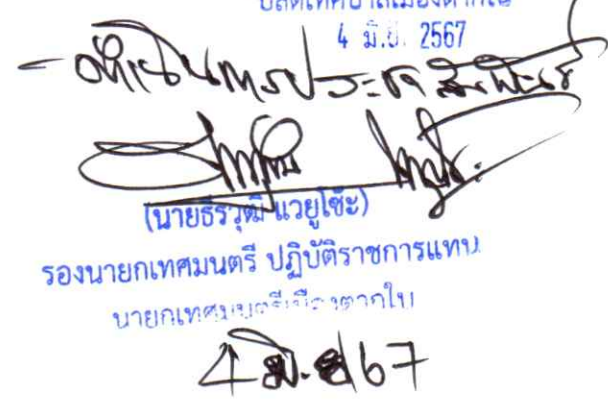 ปลัดเทศบาลเมืองตากใบ
4 มิ.ย. 2567
- ดำเนินการประชาสัมพันธ์
(นายธีรวุฒิ แวยูโซ๊ะ)
รองนายกเทศมนตรี ปฏิบัติราชการแทน
นายกเทศมนตรีเมืองตากใบ
4 มิ.ย 67